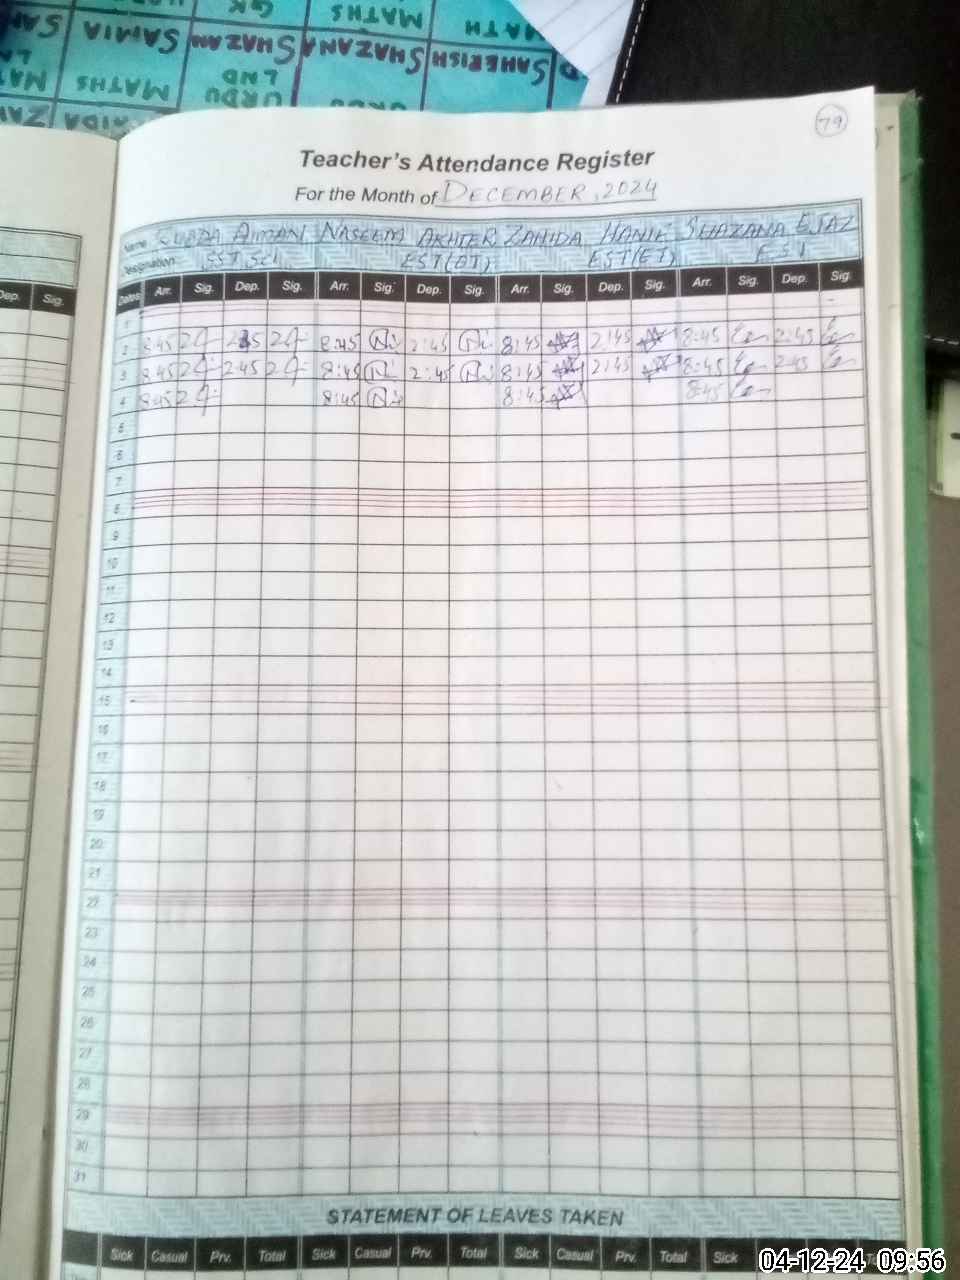 MATHS
MATH
SAMIA
SHAZANA
SHAZANA
SEHRISH
MATHS
URDU
79
Teacher's Attendance Register
For the Month of DECEMBER, 2024
Name AIMAN NASEEM AKHTER ZAHIDA HANIF SHAZANA EJAZ
Designation SST.Sci EST(DT) EST(ET) EST
Dep. Sig. Dates Arr. Sig. Dep. Sig. Arr. Sig. Dep. Sig. Arr. Sig. Dep. Sig. Arr. Sig. Dep. Sig.
1
2 8:45 2:45 8:45 2:45 8:45 2:45 8:45 2:45
3 8:45 2:45 8:45 2:45 8:45 2:45 8:45 2:45
4 8:45 8:45 8:45 8:45
5
6
7
8
9
10
11
12
13
14
15
16
17
18
19
20
21
22
23
24
25
26
27
28
29
30
31
STATEMENT OF LEAVES TAKEN
Sick Casual Prv. Total Sick Casual Prv. Total Sick Casual Prv. Total Sick Casual
04-12-24 09:56